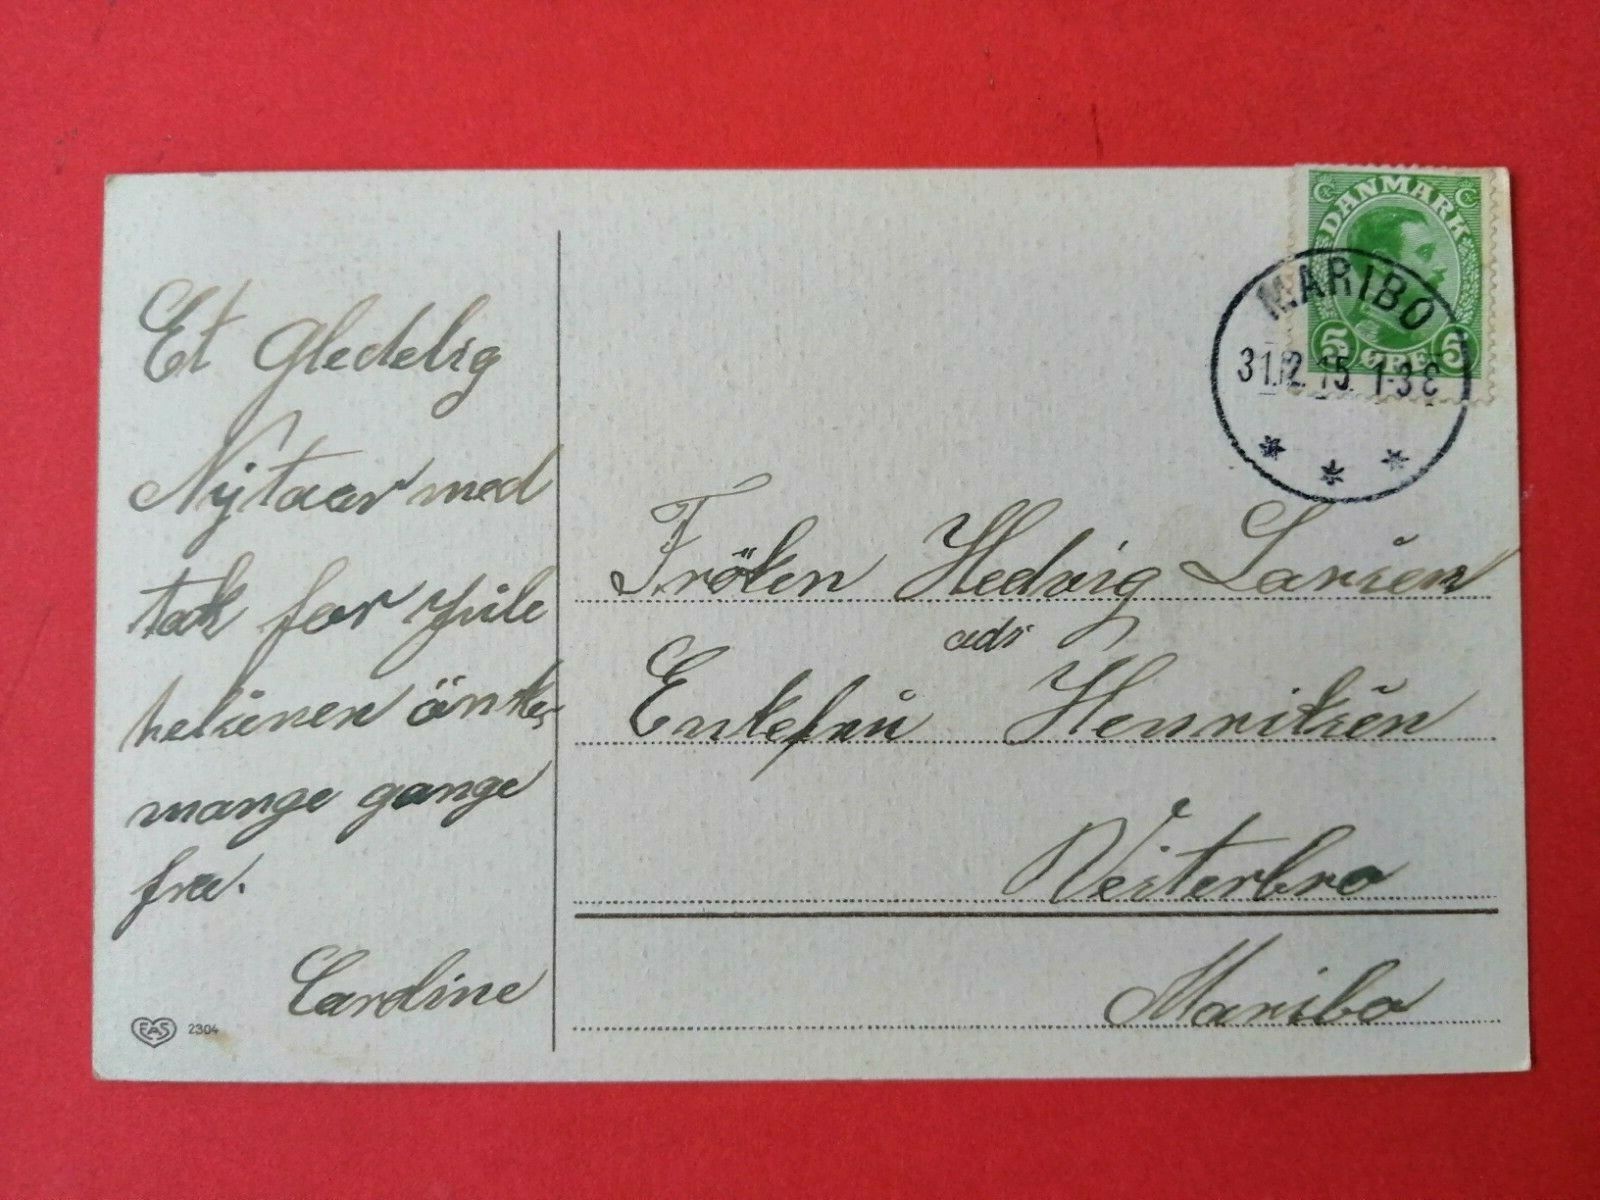 Et Gledelig
Nytaar med
tak for Jule
helsenen önskes
mange gange
fra.
Caroline
EAS 2304
DANMARK
5 ØRE 5
MARIBO
31.12.15. 1-3 E
Fröken Hedvig Larsen
adr
Enkefru Henriksen
Vesterbro
Maribo